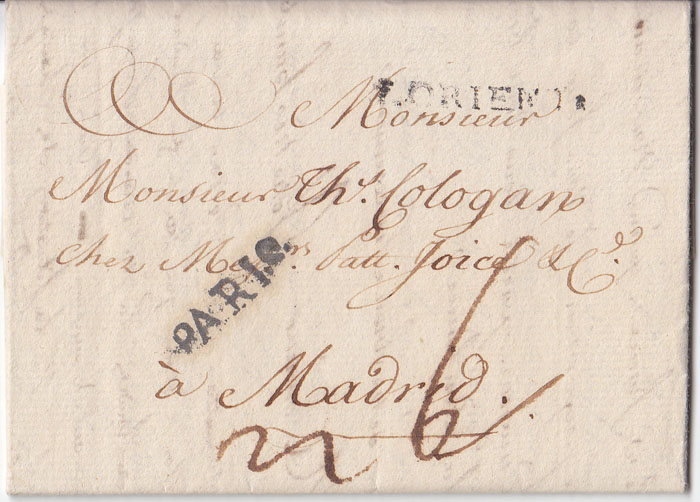 LORIENT.
Monsieur
Monsieur Ths. Cologan
chez Messrs. Patt. Joice & Cº.
PARIS.
à Madrid.